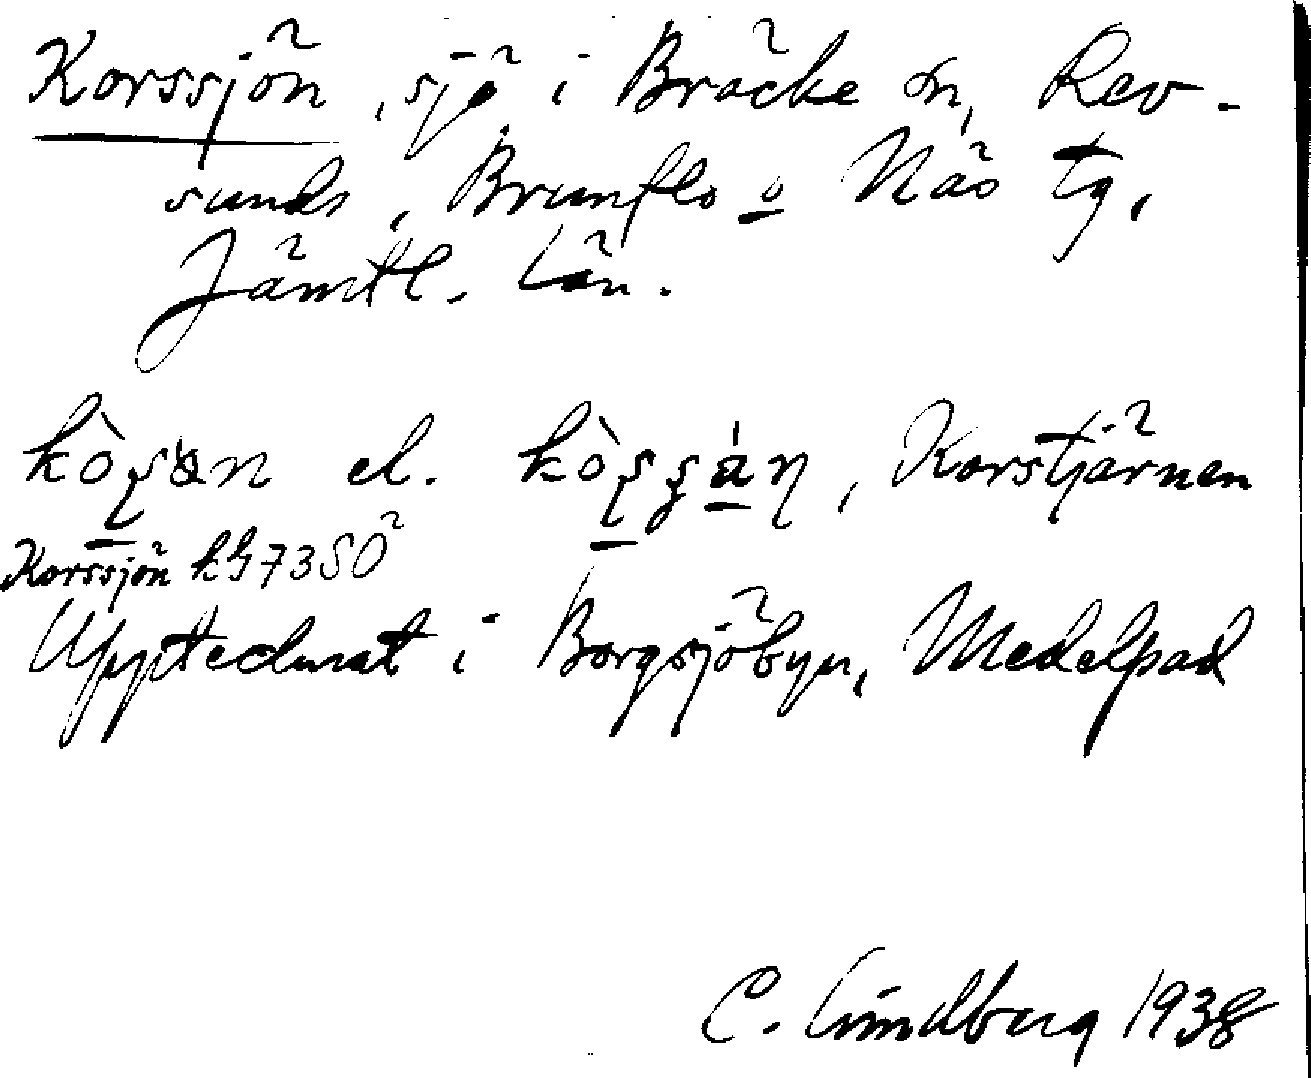 Korssjön, sjö i Bräcke sn, Rev-
sunds, Brunflo o Näs tg,
Jämtl. län.
el. , Korstjärnen
Korssjön hG73SÖ
Upptecknat i Borgsjöbyn, Medelpad
C. Lindberg 1938